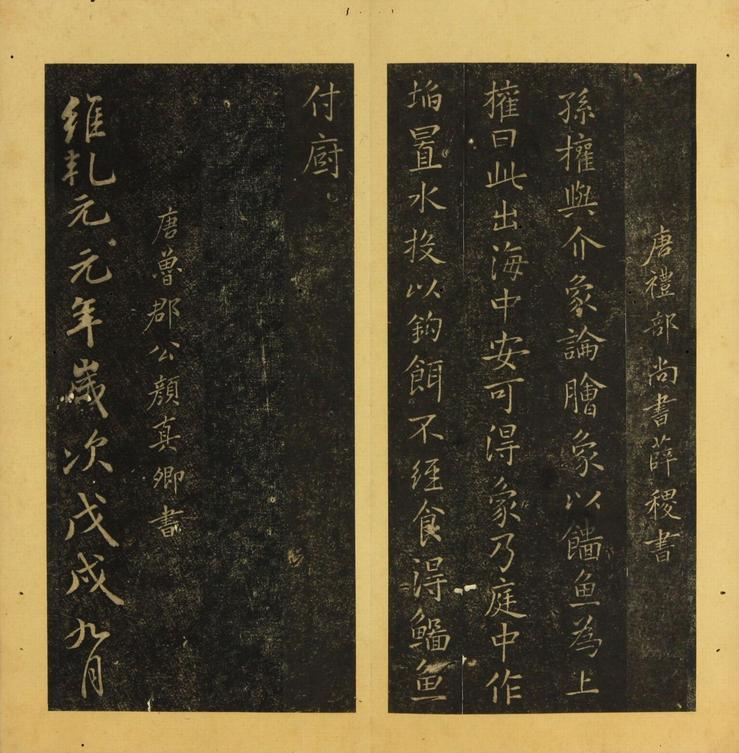 唐禮部尚書薛稷書
孫權與介象論膾象以鯔魚為上
權曰此出海中安可得象乃庭中作
埳置水投以鈎餌不經食得鯔魚
付廚
唐魯郡公顏真卿書
維乹元元年歲次戊戌九月